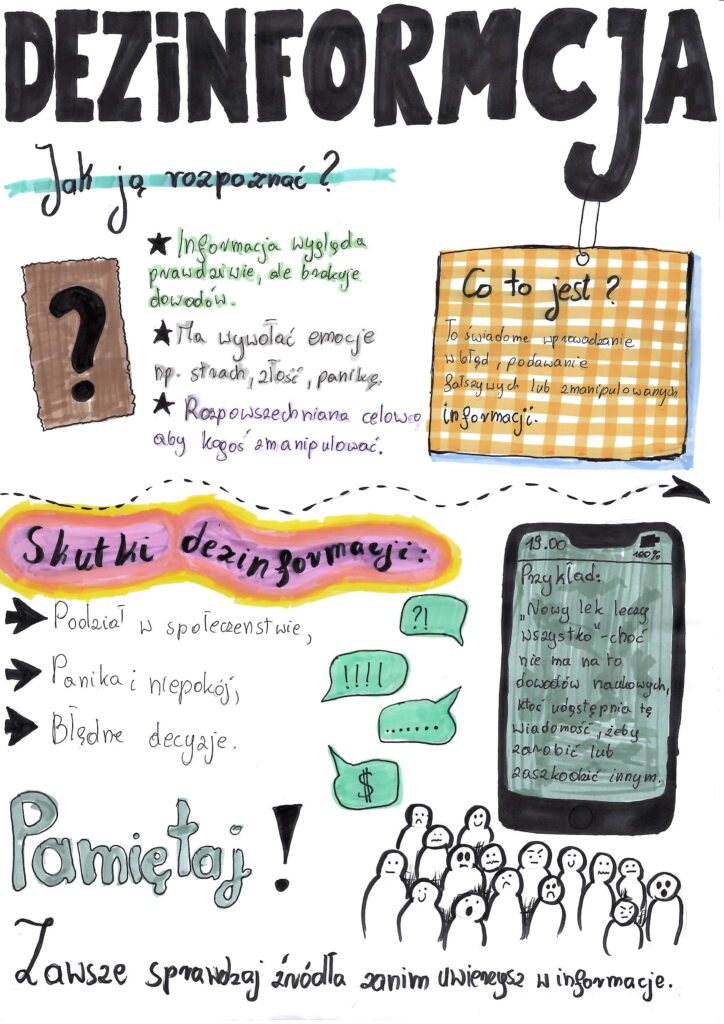 DEZiNFORMCJA
Jak ją rozpoznać?
?
★ Informacja wygląda
prawdziwie, ale brakuje
dowodów.
★ Ma wywołać emocje
np. strach, złość, panikę.
★ Rozpowszechniana celowo
aby kogoś zmanipulować.
Co to jest?
To świadome wprowadzanie
w błąd, podawanie
fałszywych lub zmanipulowanych
informacji.
Skutki dezinformacji:
Podział w społeczeństwie,
Panika i niepokój,
Błędne decyzje.
?!
!!!!
.......
$
19.00
100%
Przykład:
„Nowy lek leczy
wszystko" - choć
nie ma na to
dowodów naukowych,
ktoś udostępnia tę
wiadomość, żeby
zarobić lub
zaszkodzić innym.
Pamiętaj!
Zawsze sprawdzaj źródła zanim uwierzysz w informacje.